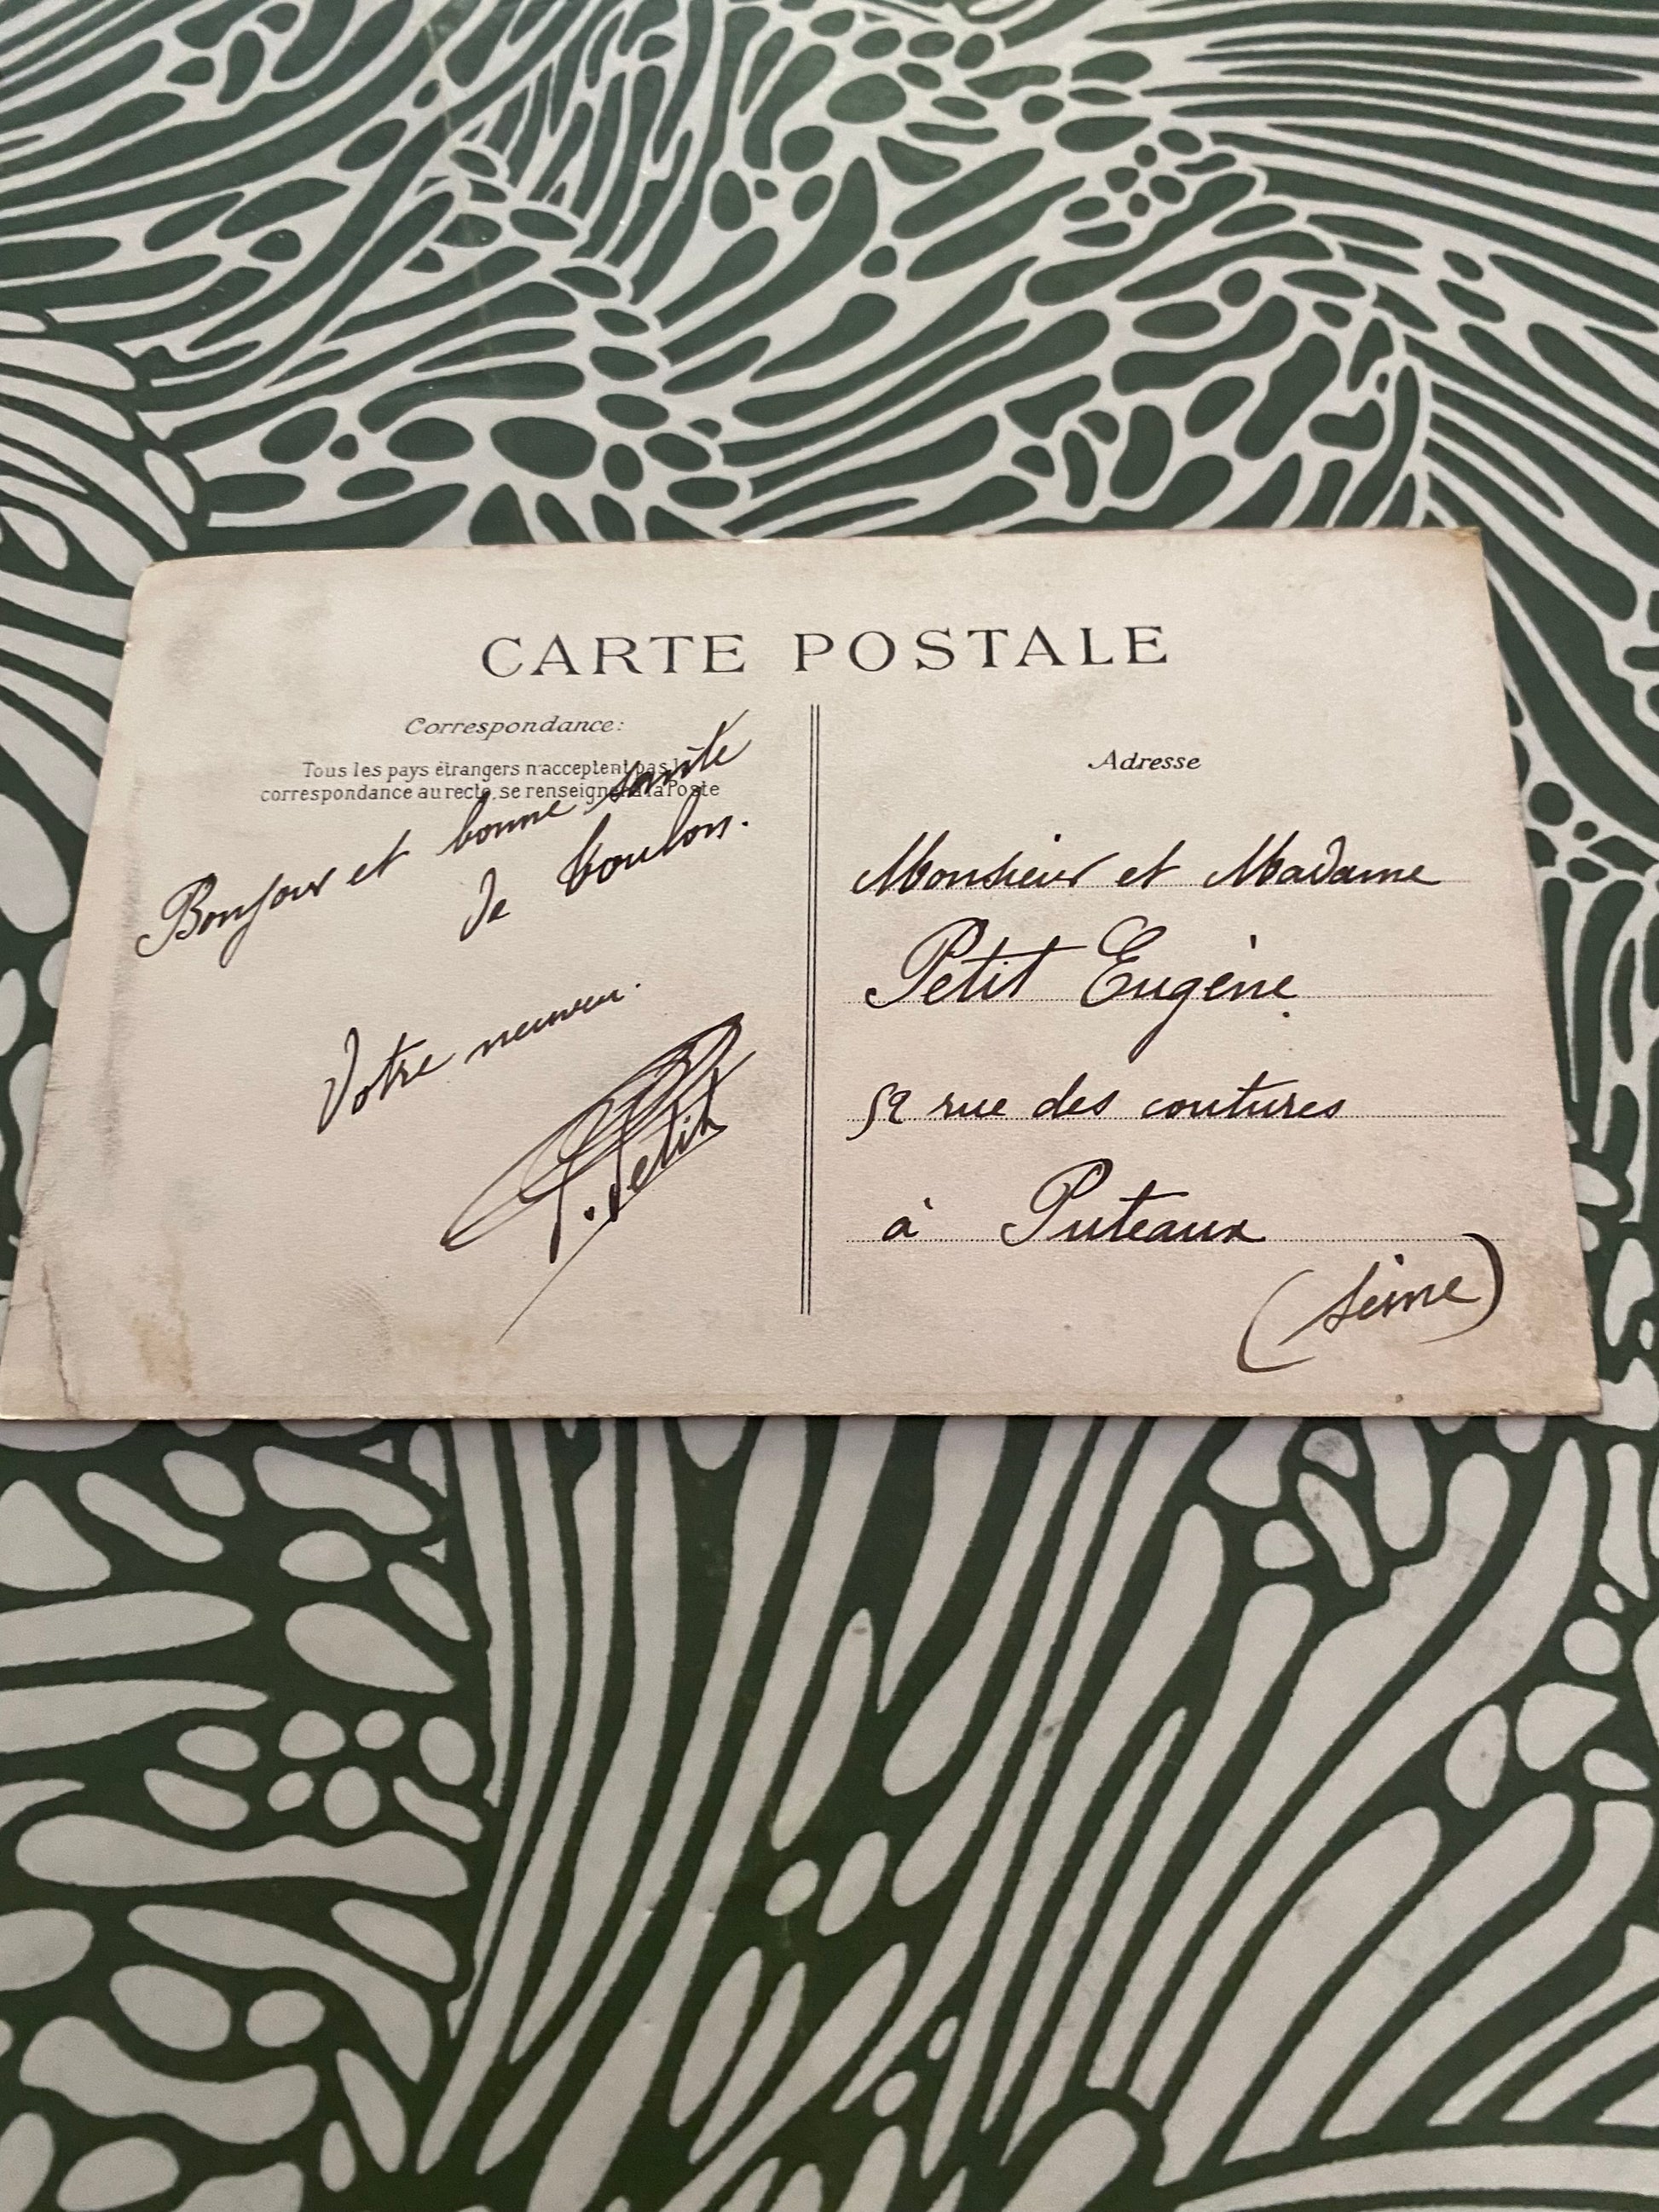 CARTE POSTALE
Correspondance:
Tous les pays étrangers n'acceptent pas la
correspondance au recto, se renseigner à la Poste
Bonjour et bonne santé
de Toulon.
Votre neuveu.
P. Petit
Adresse
Monsieur et Madame
Petit Eugène.
52 rue des coutures
à Puteaux
(Seine)